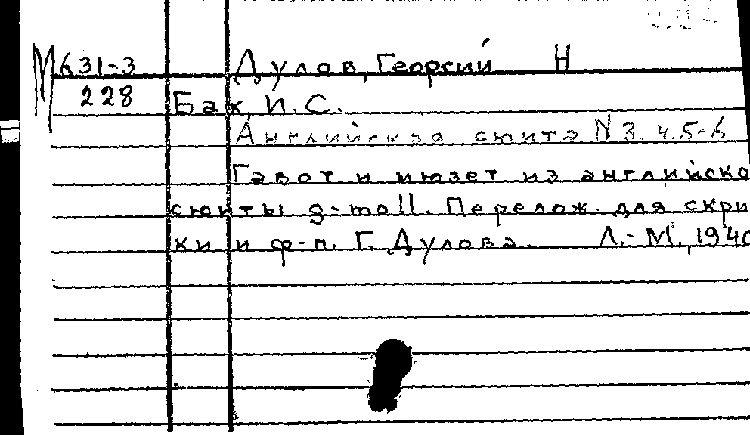 М 631-3 Дулов, Георгий Н
228 Бах, И. С.
Английская сюита N 3. ч. 5-6
Гавот и мюзет из английско
сюиты g-moll. Перелож. для скри
ки и ф-п. Г. Дулова. Л.-М., 1940